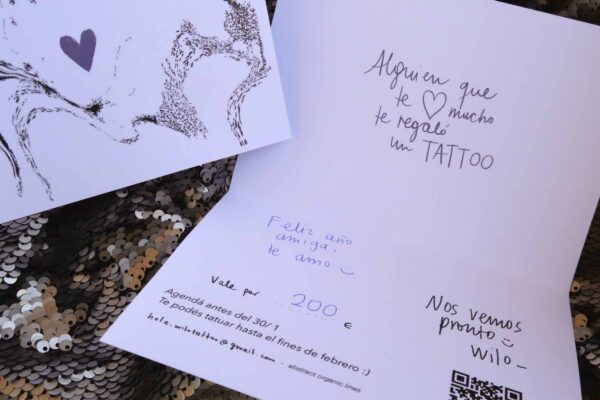 Alguien que
te ♡ mucho
te regaló
un TATTOO
Feliz año
amiga!
te amo
Vale por 200 €
Agendá antes del 30/1
Te podés tatuar hasta el fines de febrero :)
hola.wilotattoo@gmail.com.
abstract organic lines
Nos vemos
pronto
Wilo-